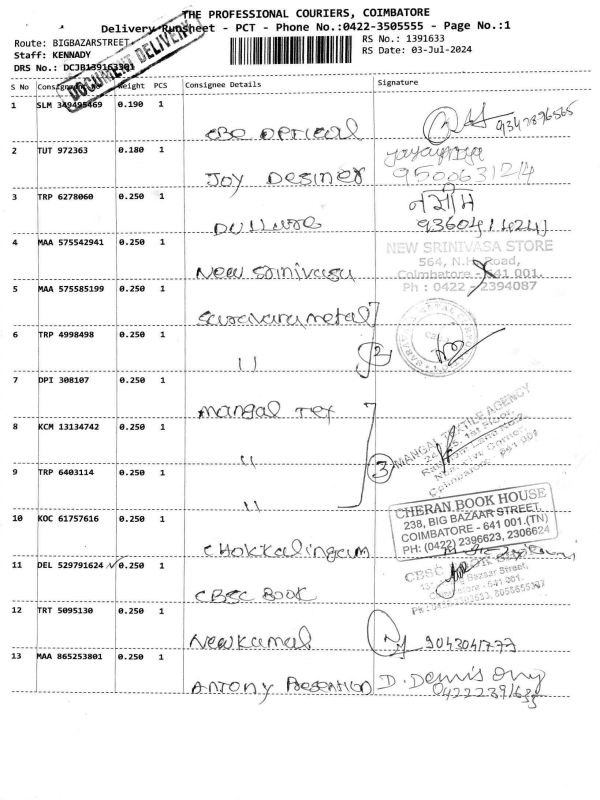 THE PROFESSIONAL COURIERS, COIMBATORE
Delivery Runsheet - PCT - Phone No.:0422-3505555 - Page No.:1
Route: BIGBAZARSTREET
RS No.: 1391633
Staff: KENNADY
RS Date: 03-Jul-2024
DRS No.: DCJB139163301
DOCUMENT DELIVERY
S No Consignment No Weight PCS Consignee Details Signature
1 SLM 349495469 0.190 1 CBC OPTICAL 9347896565
2 TUT 972363 0.180 1 JOY DESINER 9500631214
3 TRP 6278060 0.250 1
4 MAA 575542941 0.250 1 New Srinivasa
NEW SRINIVASA STORE
564, N.H. Road,
Coimbatore - 641 001.
Ph : 0422 - 2394087
5 MAA 575585199 0.250 1 Saravana metal
6 TRP 4998498 0.250 1 " 2
7 DPI 308107 0.250 1 Mangal Tex
MANGAL TEXTILE AGENCY
8 KCM 13134742 0.250 1 "
9 TRP 6403114 0.250 1 " 3
10 KOC 61757616 0.250 1 CHOKKALINGAM
CHERAN BOOK HOUSE
238, BIG BAZAAR STREET,
COIMBATORE - 641 001.(TN)
PH: (0422) 2396623, 2306624
11 DEL 529791624 0.250 1 CBSC BOOK
12 TRT 5095130 0.250 1 New Kamal 9043041777
13 MAA 865253801 0.250 1 ANTONY